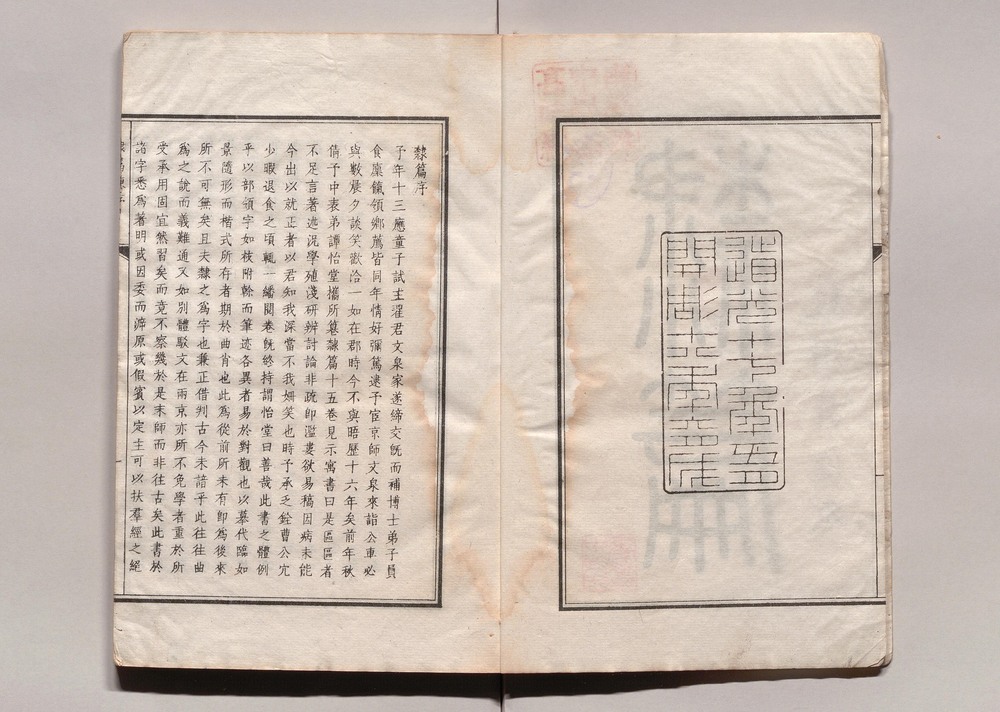 道光十七季五月
開彫十
隸篇序
予年十三應童子試主濯君文泉家遂締交旣而補博士弟子員
食廩餼領鄉薦皆同年情好彌篤逮予宦京師文泉來詣公車必
與數晨夕談笑歡洽一如在郡時今不與晤歷十六年矣前年秋
倩予中表弟譚怡堂攜所篹隸篇十五卷見示寓書曰是區區者
不足言著述況學殖淺研辨討論非疏卽濫屢欲易稿因病未能
今出以就正者以君知我深當不我姍笑也時予承乏銓曹公冗
少暇退食之頃輒一繙閱卷旣終持謂怡堂曰善哉此書之體例
乎以部領字如枝附榦而筆迹各異者易於對觀也以摹代臨如
景隨形而楷式所存者期於曲肖也此爲從前所未有卽爲後來
所不可無矣且夫隸之爲字也兼正借判古今未諳乎此往往曲
爲之說而義難通又如別體駁文在兩京亦所不免學者重於所
受承用固宜然習矣而竟不察幾於是末師而非往古矣此書於
諸字悉爲著明或因委而㴑原或假賓以定主可以扶羣經之經